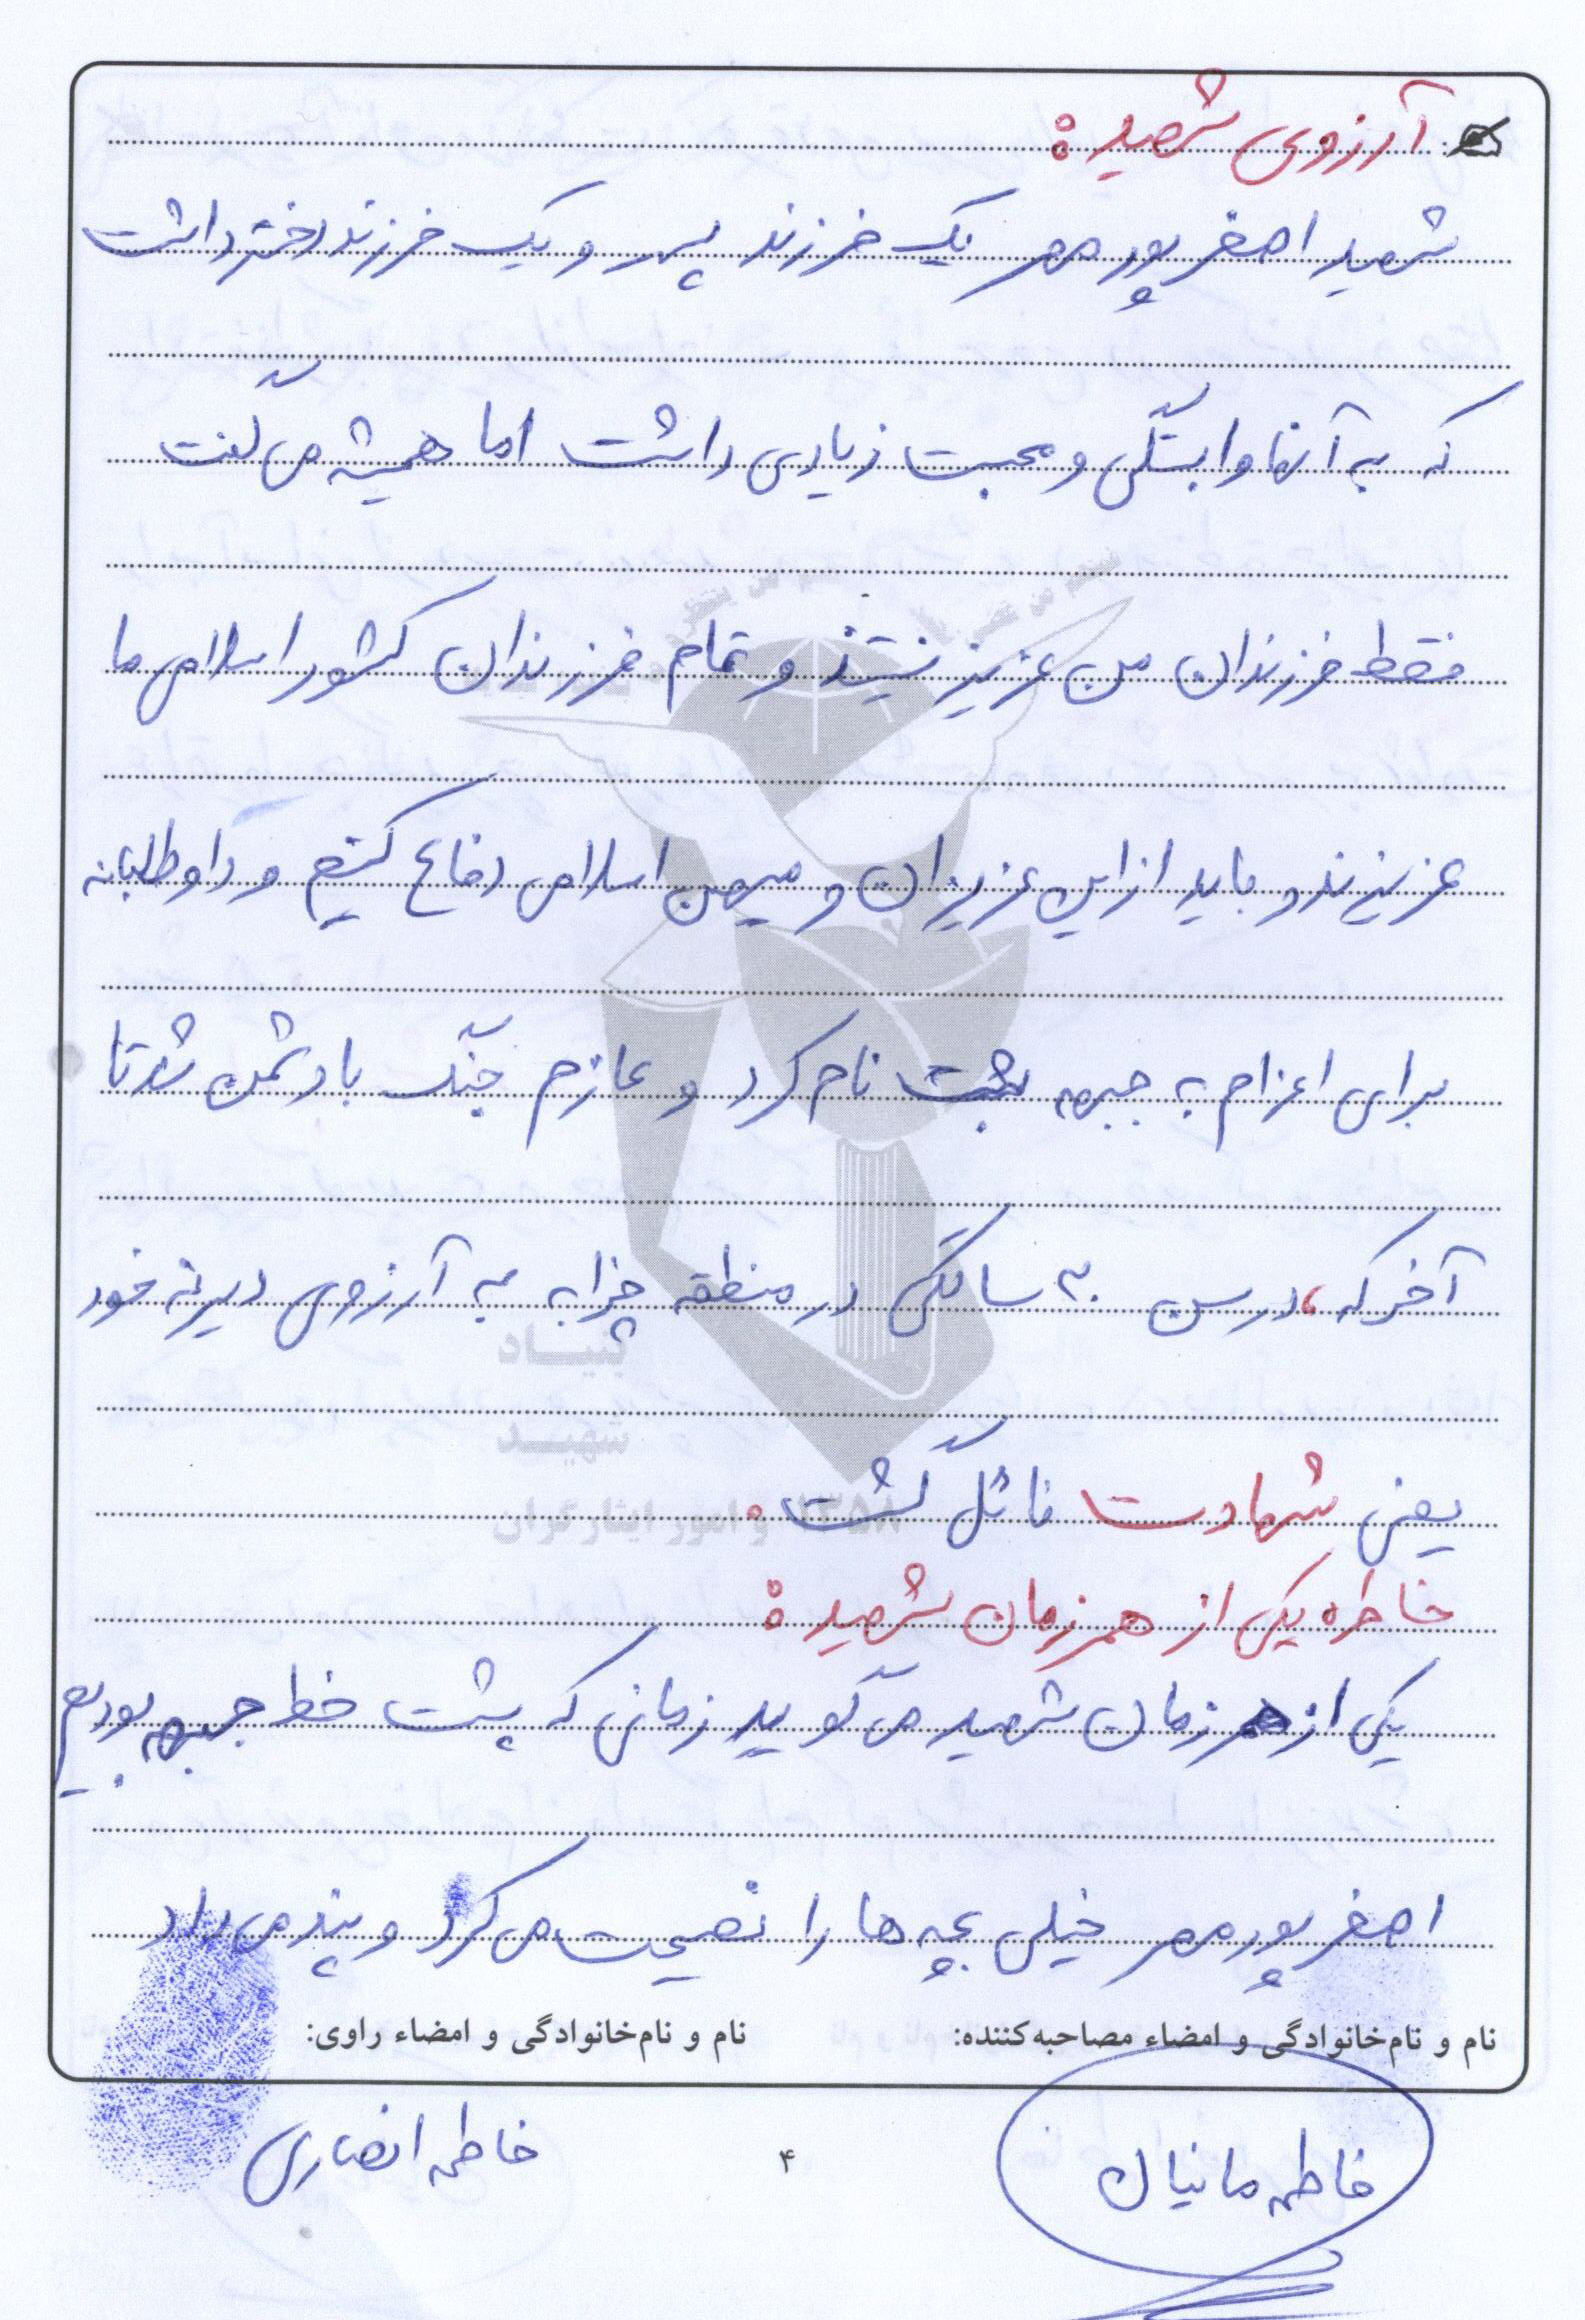 آرزوی شهید:
شهید اصغر پورمهر یک فرزند پسر و یک فرزند دختر داشت
که به آنها وابستگی و محبت زیادی داشت اما همیشه می گفت
فقط فرزندان من عزیز نیستند و تمام فرزندان کشور اسلامی ما
عزیزند و باید از این عزیزان و میهن اسلامی دفاع کنیم و داوطلبانه
برای اعزام به جبهه ثبت نام کرد و عازم جنگ با دشمن شد تا
آخر که، در سن ۳۰ سالگی در منطقه چزابه به آرزوی دیرینه خود
یعنی شهادت نائل گشت.
خاطره یکی از همرزمان شهید:
یکی از همرزمان شهید می گوید زمانی که پشت خط جبهه بودیم
اصغر پورمهر خیلی بچه ها را نصیحت می کرد و پند می داد
نام و نام‌خانوادگی و امضاء مصاحبه‌کننده: نام و نام‌خانوادگی و امضاء راوی:
فاطمه مانیان فاطمه انصاری
۴
بنیاد
شهید
و امور ایثارگران ۱۳۵۸